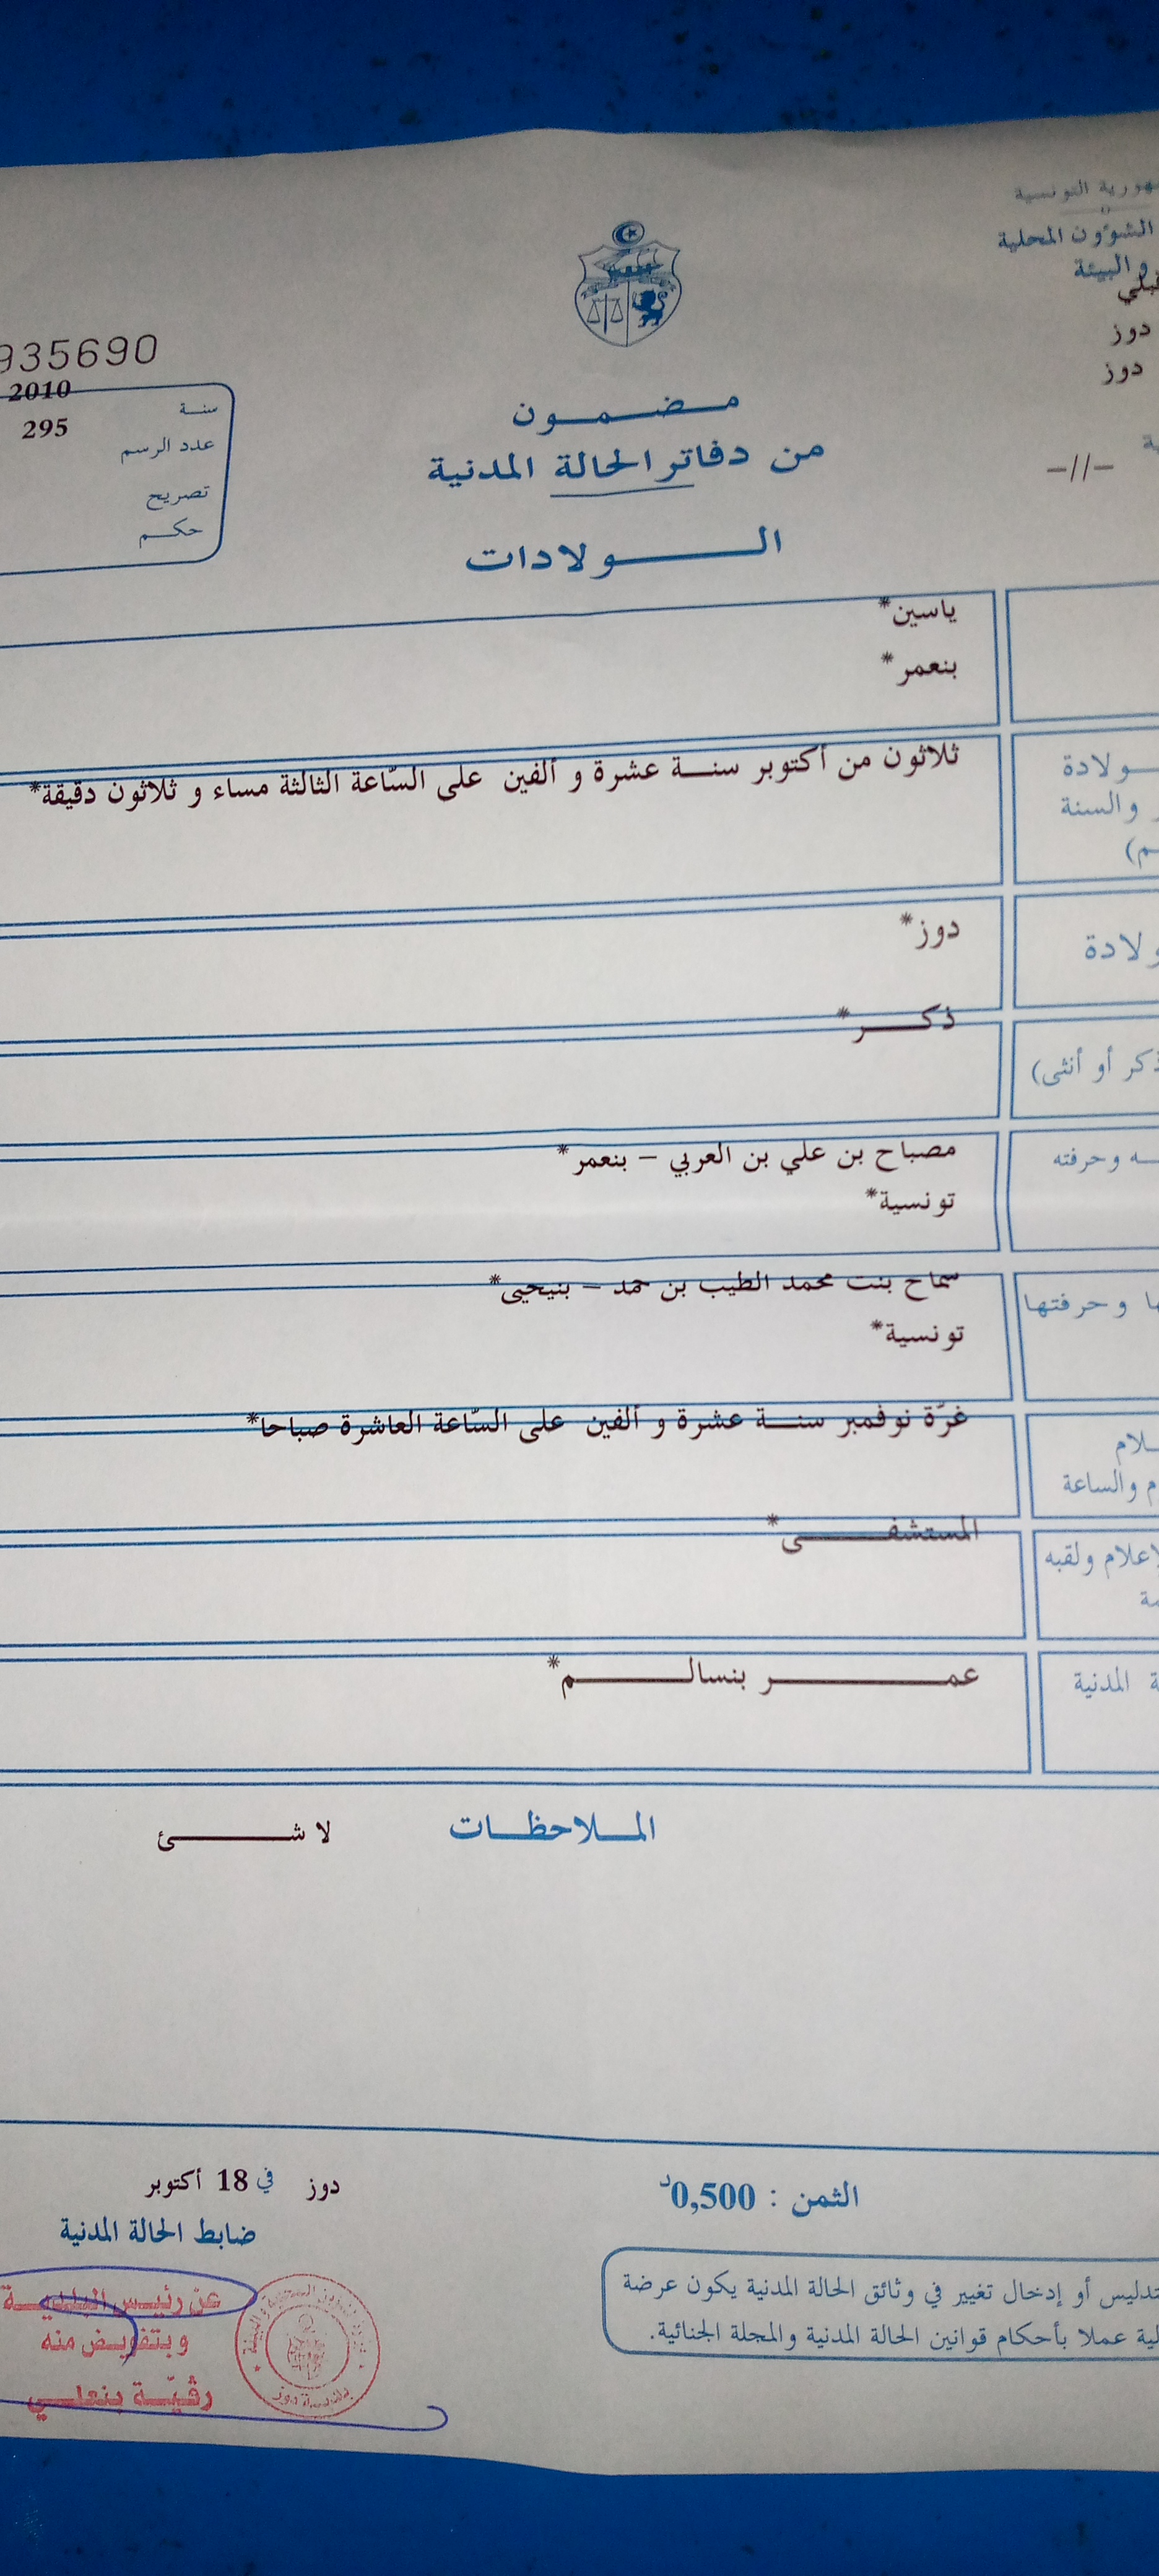 الشوؤون المحلية
والبيئة
دوز
دوز
-//-
935690
سنة 2010
عدد الرسم 295
تصريح
حكم
مضمون
من دفاتر الحالة المدنية
الولادات
ياسين*
بنعمر*
ثلاثون من أكتوبر سنة عشرة و ألفين على السّاعة الثالثة مساء و ثلاثون دقيقة*
والسنة
دوز*
ذكر*
ذكر أو أنثى)
مصباح بن علي بن العربي - بنعمر*
وحرفته
تونسية*
سماح بنت محمد الطيب بن حمد - بنيحيى*
وحرفتها
تونسية*
غرّة نوفمبر سنة عشرة و ألفين على السّاعة العاشرة صباحا*
والساعة
المستشفى*
ولقبه
عمر بنسالم*
المدنية
الملاحظات
لا شئ
الثمن : 0,500د
دوز في 18 أكتوبر
ضابط الحالة المدنية
تدليس أو إدخال تغيير في وثائق الحالة المدنية يكون عرضة
عملا بأحكام قوانين الحالة المدنية والمجلة الجنائية.
عن رئيس البلدية
وبتفويض منه
رقيّة بنعلي
بلدية دوز